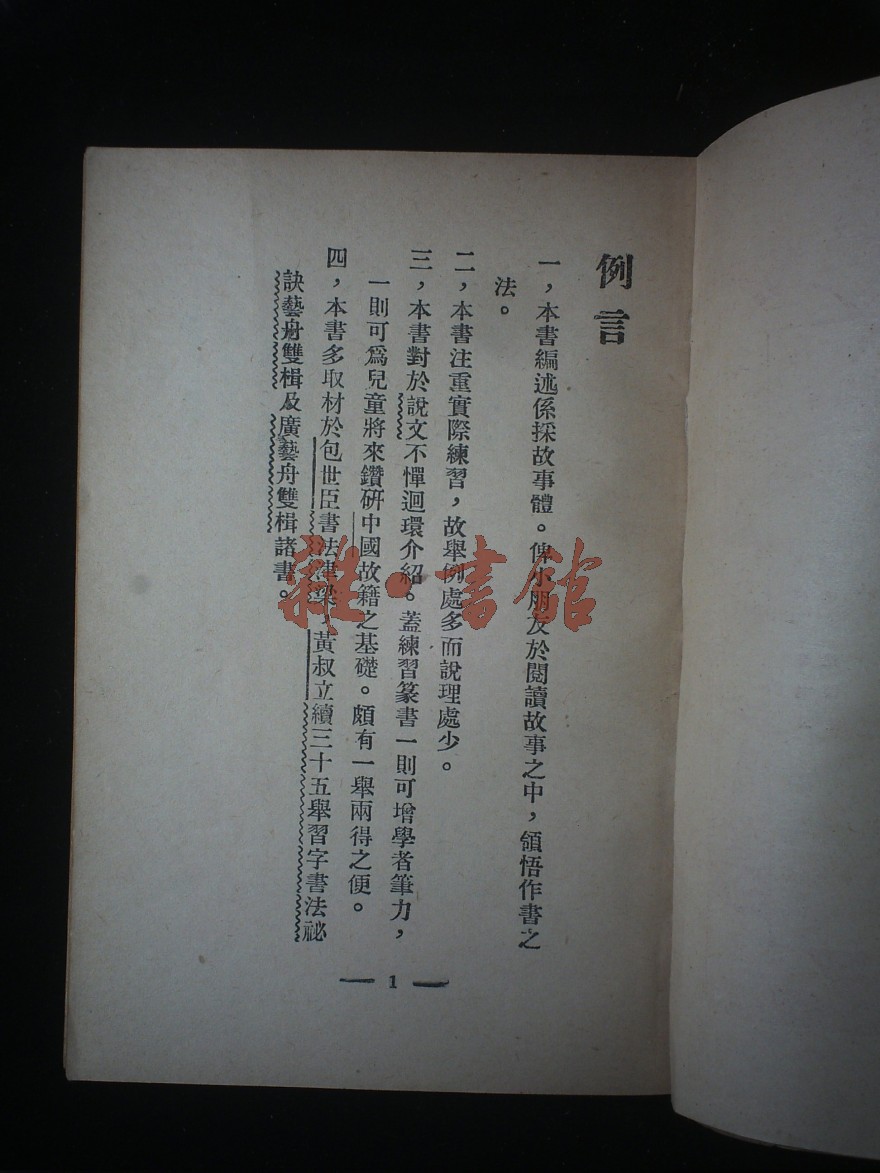 例言
一，本書編述係採故事體。俾小朋友於閱讀故事之中，領悟作書之
法。
二，本書注重實際練習，故舉例處多而說理處少。
三，本書對於說文不憚迴環介紹。蓋練習篆書一則可增學者筆力，
一則可爲兒童將來鑽研中國故籍之基礎。頗有一舉兩得之便。
四，本書多取材於包世臣書法津梁，黃叔立續三十五舉習字書法祕
訣藝舟雙楫及廣藝舟雙楫諸書。
1
雜·書館